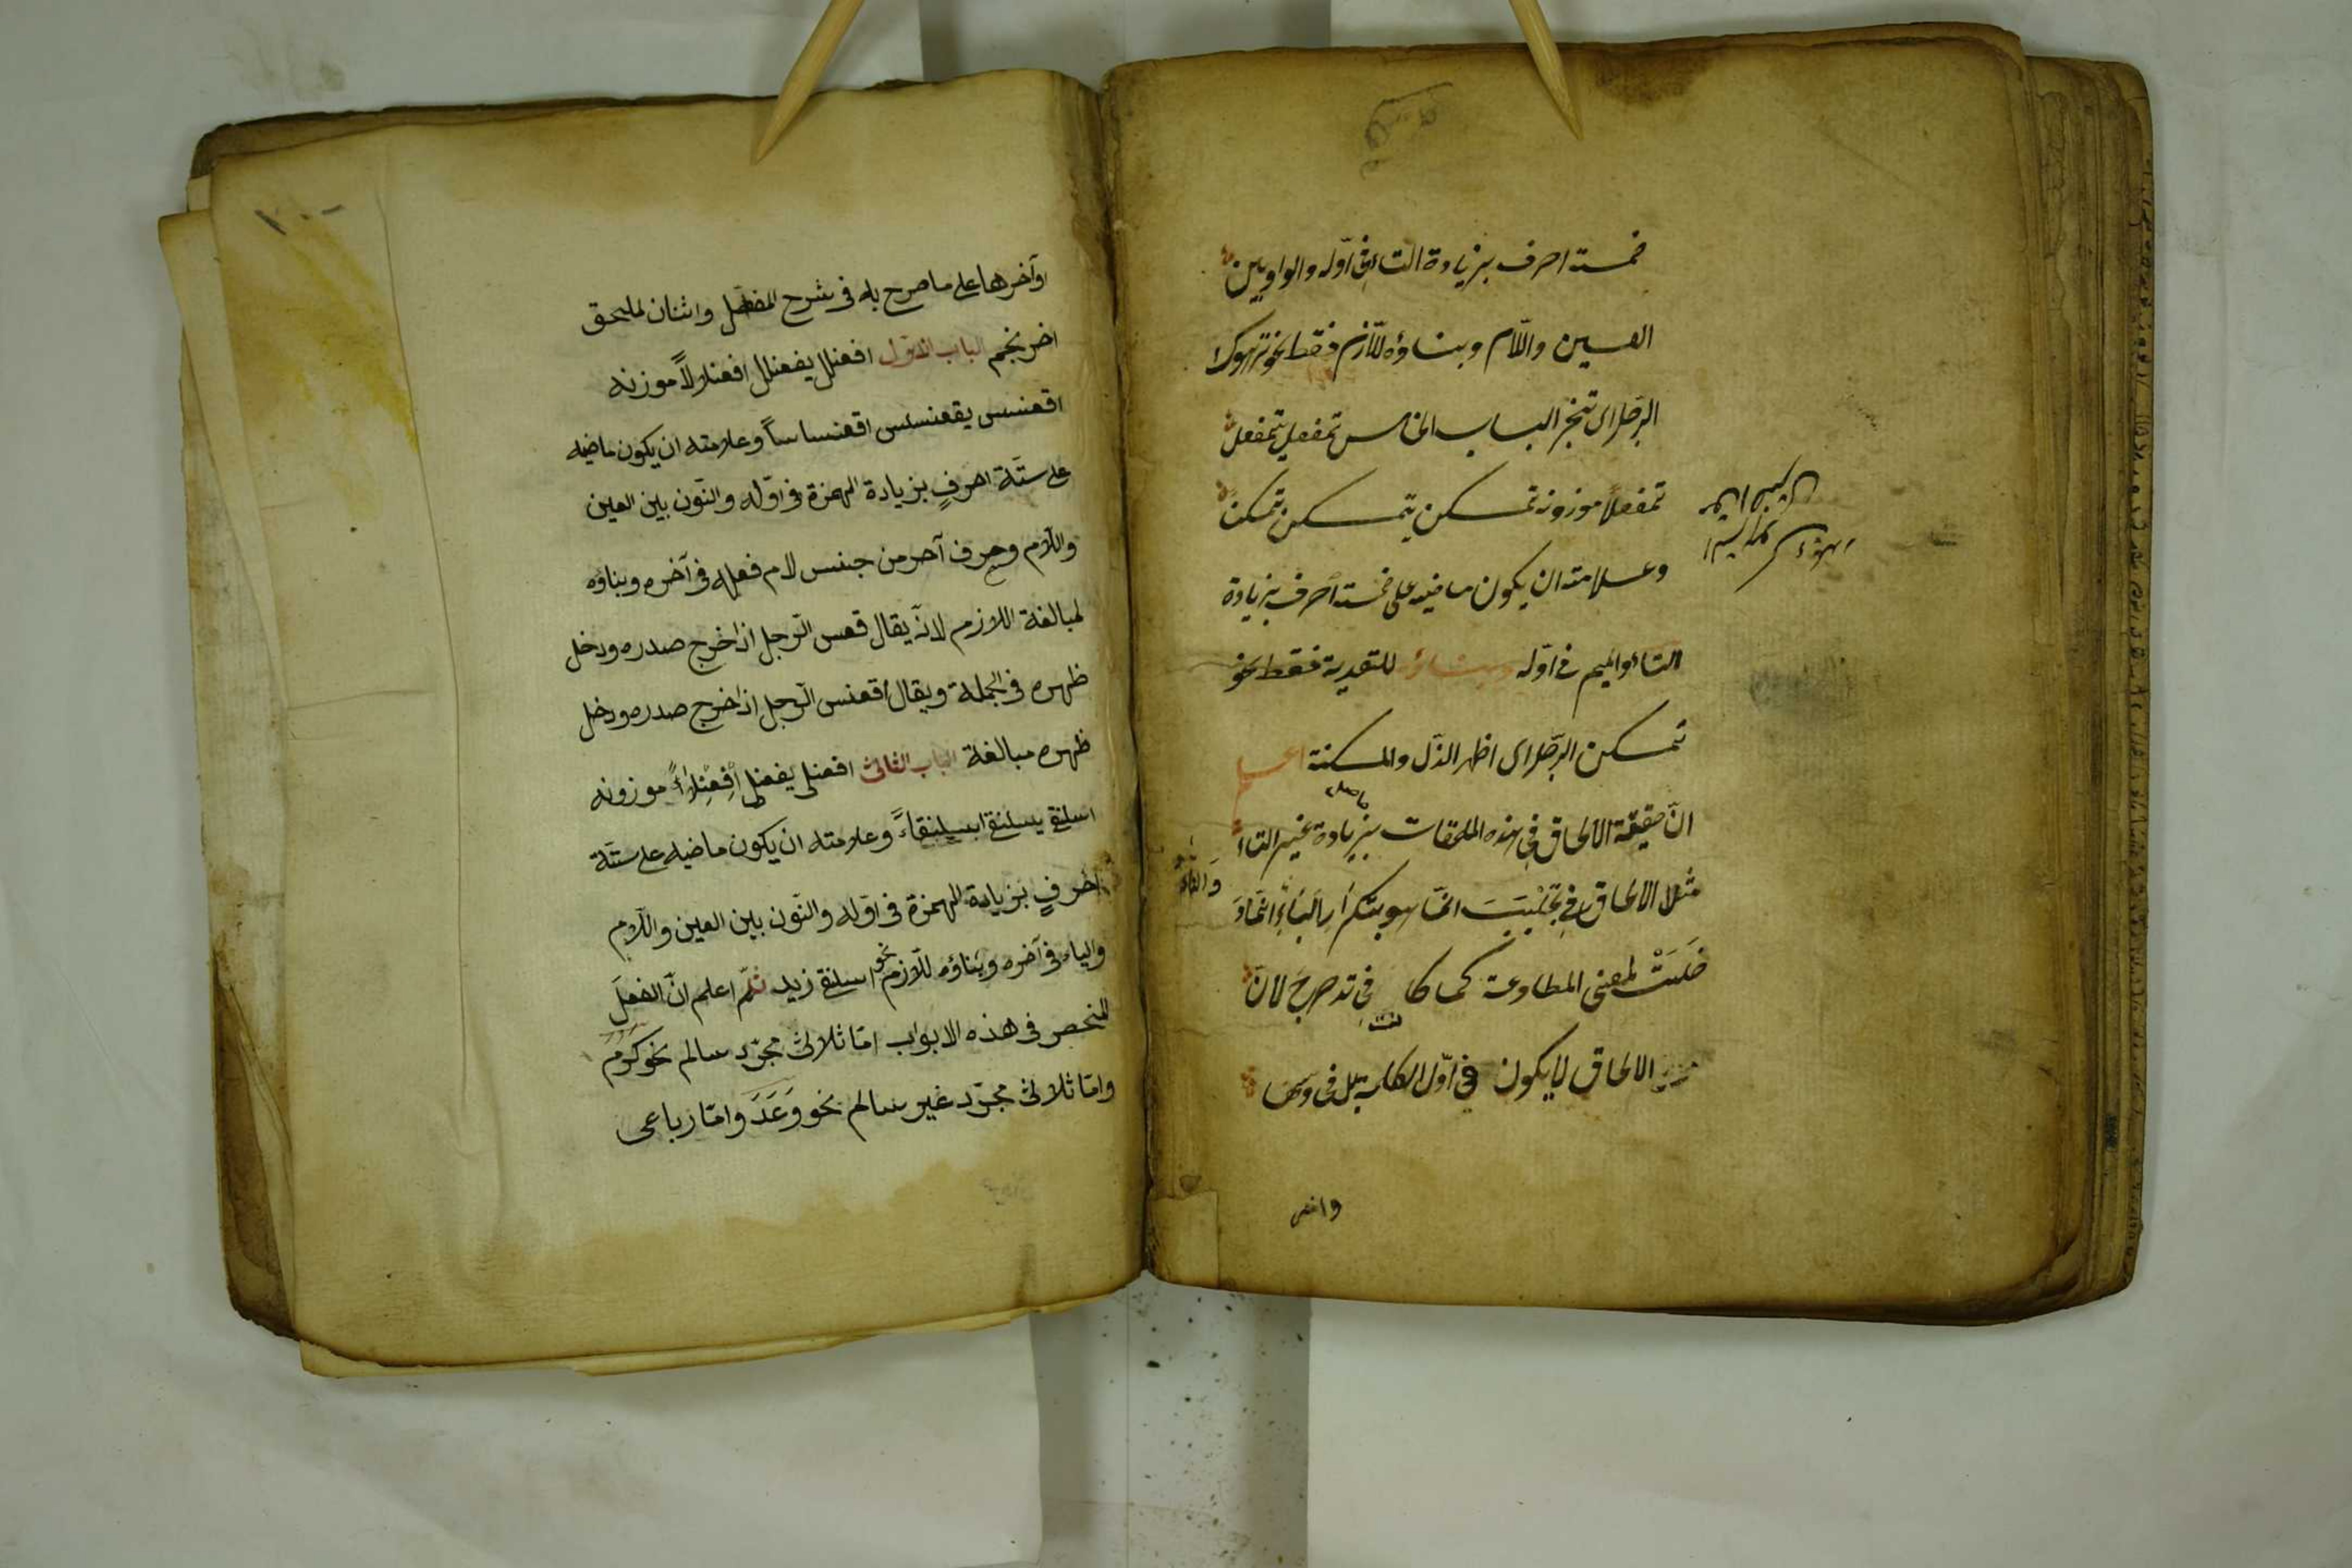 خمسة احرف بزيادة التاء فى اوّله والواو بين
العين واللّام وبناؤه للّازم فقط نحو ترهوك
الرّجل اى تبختر الباب الخامس تمفعل يتمفعل
تمفعلاً موزونه تمسكن يتمسكن تمسكناً
وعلامته ان يكون ماضيه على خمسة احرف بزيادة
التاء والميم فى اوّله وبناؤه للتعدية فقط نحو
تمسكن الرّجل اى اظهر الذّل والمسكنة اعلم
انّ حقيقة الالحاق فى هذه الملحقات بزيادة غير التاء
مثلا الالحاق فى تَجَلْبَبَ انّما هو بتكرار الباء والتاء انّما
دَخَلَتْ لمعنى المطاوعة كما كانت فى تدحرج لانّ
الالحاق لا يكون فى اوّل الكلمة بل فى وسطها
وآخرها على ما صرح به فى شرح المفصّل واثنان لملحق
احرنجم الباب الاوّل افعنلل يفعنلل افعنلالاً موزونه
اقعنسس يقعنسس اقعنساساً وعلامته ان يكون ماضيه
على ستّة احرفٍ بزيادة الهمزة فى اوّله والنّون بين العين
واللّام وحرف آخر من جنس لام فعله فى آخره وبناؤه
لمبالغة اللازم لانّه يقال قعس الرّجل اذا خرج صدره ودخل
ظهره فى الجملة ويقال اقعنسس الرّجل اذا خرج صدره ودخل
ظهره مبالغة الباب الثانى افعنلى يفعنلى اِفْعِنْلاءً موزونه
اسلنقى يسلنقى اسلنقاءً وعلامته ان يكون ماضيه على ستّة
احرفٍ بزيادة الهمزة فى اوّله والنّون بين العين واللّام
والياء فى آخره وبناؤه للّازم نحو اسلنقى زيد ثمّ اعلم انّ الفعلَ
المنحصر فى هذه الابواب امّا ثلاثى مجرّد سالم نحو كرم
وامّا ثلاثى مجرّد غير سالم نحو وَعَدَ وامّا رباعى